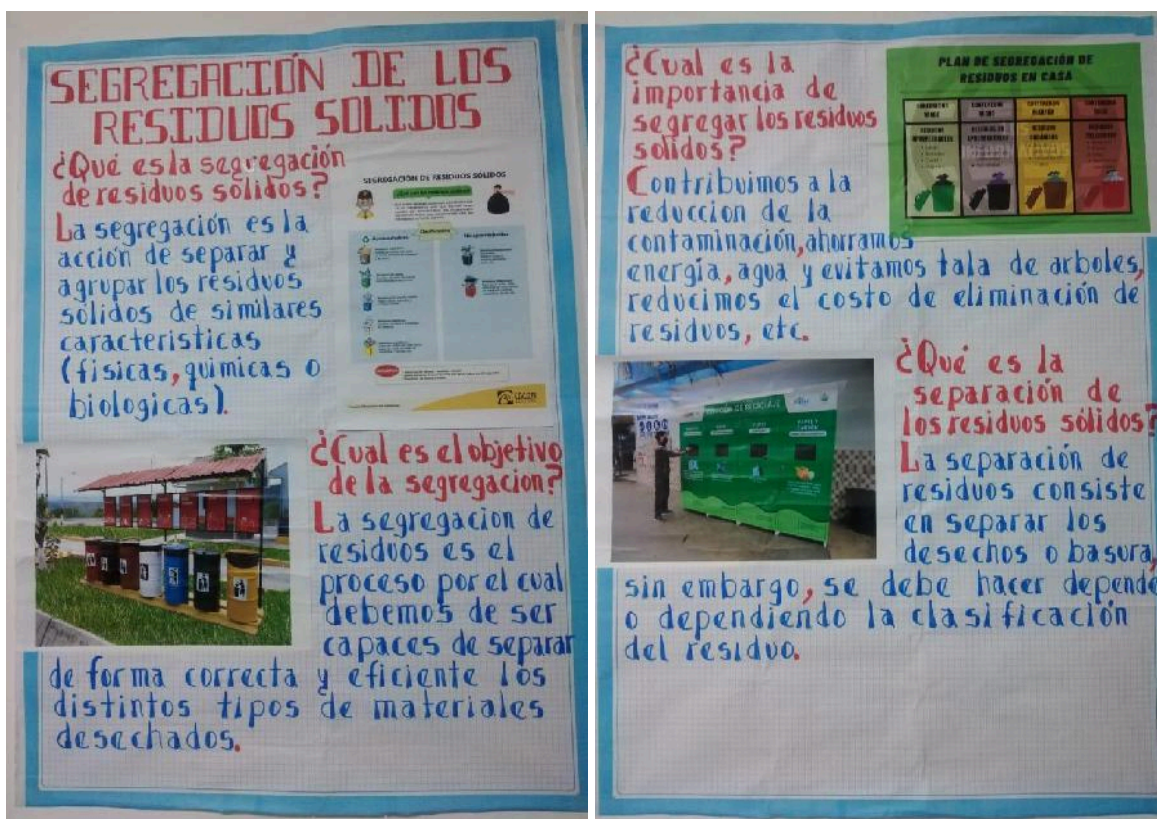 SEGREGACIÓN DE LOS
RESIDUOS SOLIDOS
¿Qué es la segregación
de residuos sólidos?
La segregación es la
acción de separar y
agrupar los residuos
sólidos de similares
caracteristicas
(fisicas, quimicas o
biologicas).
SEGREGACIÓN DE RESIDUOS SÓLIDOS
¿Cual es el objetivo
de la segregacion?
La segregacion de
residuos es el
proceso por el cual
debemos de ser
capaces de separar
de forma correcta y eficiente los
distintos tipos de materiales
desechados.
¿Cual es la
importancia de
segregar los residuos
solidos?
PLAN DE SEGREGACIÓN DE
RESIDUOS EN CASA
Contribuimos a la
reduccion de la
contaminación, ahorramos
energía, agua y evitamos tala de arboles,
reducimos el costo de eliminación de
residuos, etc.
¿Qué es la
separación de
los residuos sólidos?
La separación de
residuos consiste
en separar los
desechos o basura,
sin embargo, se debe hacer depende
o dependiendo la clasificación
del residuo.